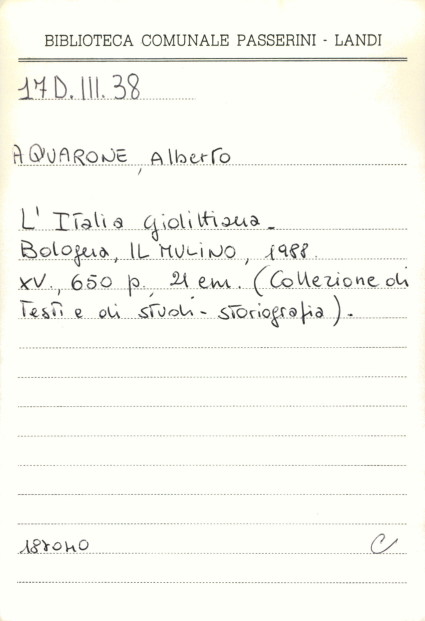 BIBLIOTECA COMUNALE PASSERINI - LANDI
17D.III.38
AQUARONE, Alberto
L' Italia giolittiana.
Bologna, IL MULINO, 1988.
XV., 650 p., 21 cm. (Collezione di
Testi e di studi - storiografia).
C